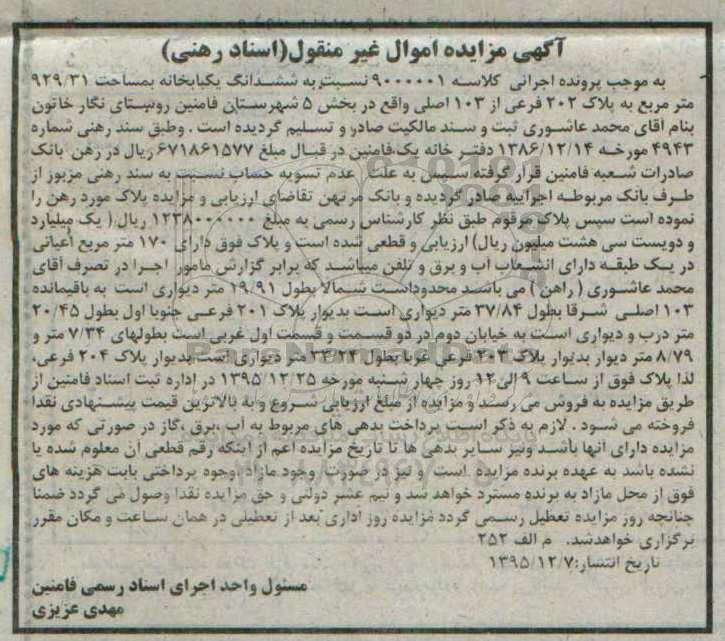 آگهی مزایده اموال غیر منقول(اسناد رهنی)
به موجب پرونده اجرائی کلاسه ۹۰۰۰۰۰۱ نسبت به ششدانگ یکبابخانه بمساحت ۹۲۹/۳۱
متر مربع به پلاک ۲۰۲ فرعی از ۱۰۳ اصلی واقع در بخش ۵ شهرستان فامنین روستای نگار خاتون
بنام آقای محمد عاشوری ثبت و سند مالکیت صادر و تسلیم گردیده است . وطبق سند رهنی شماره
۴۹۴۳ مورخه ۱۳۸۶/۱۲/۱۴ دفتر خانه یک فامنین در قبال مبلغ ۶۷۱۸۶۱۵۷۷ ریال در رهن بانک
صادرات شعبه فامنین قرار گرفته سپس به علت عدم تسویه حساب نسبت به سند رهنی مزبور از
طرف بانک مربوطه اجراییه صادر گردیده و بانک مرتهن تقاضای ارزیابی و مزایده پلاک مورد رهن را
نموده است سپس پلاک مرقوم طبق نظر کارشناس رسمی به مبلغ ۱۲۳۸۰۰۰۰۰۰ ریال( یک میلیارد
و دویست سی هشت میلیون ریال) ارزیابی و قطعی شده است و پلاک فوق دارای ۱۷۰ متر مربع اعیانی
در یک طبقه دارای انشعاب آب و برق و تلفن میباشد که برابر گزارش مامور اجرا در تصرف آقای
محمد عاشوری ( راهن ) می باشد محدوداست شمالا بطول ۱۹/۹۱ متر دیواری است به باقیمانده
۱۰۳ اصلی شرقا بطول ۳۷/۸۴ متر دیواری است بدیوار پلاک ۲۰۱ فرعی جنوبا اول بطول ۲۰/۴۵
متر درب و دیواری است به خیابان دوم در دو قسمت و قسمت اول غربی است بطولهای ۷/۳۴ متر و
۸/۷۹ متر دیوار بدیوار پلاک ۲۰۳ فرعی غربا بطول ۳۳/۲۲ متر دیواری است بدیوار پلاک ۲۰۴ فرعی،
لذا پلاک فوق از ساعت ۹ الی۱۲ روز چهار شنبه مورخه ۱۳۹۵/۱۲/۲۵ در اداره ثبت اسناد فامنین از
طریق مزایده به فروش می رسد و مزایده از مبلغ ارزیابی شروع و به بالاترین قیمت پیشنهادی نقدا
فروخته می شود . لازم به ذکر است پرداخت بدهی های مربوط به آب ،برق ،گاز در صورتی که مورد
مزایده دارای آنها باشد ونیز سایر بدهی ها تا تاریخ مزایده اعم از اینکه رقم قطعی آن معلوم شده یا
نشده باشد به عهده برنده مزایده است و نیز در صورت وجود مازاد ،وجوه پرداختی بابت هزینه های
فوق از محل مازاد به برنده مسترد خواهد شد و نیم عشر دولتی و حق مزایده نقدا وصول می گردد ضمنا
چنانچه روز مزایده تعطیل رسمی گردد مزایده روز اداری بعد از تعطیلی در همان ساعت و مکان مقرر
برگزاری خواهدشد. م الف ۲۵۲
تاریخ انتشار:۱۳۹۵/۱۲/۷
مسئول واحد اجرای اسناد رسمی فامنین
مهدی عزیزی